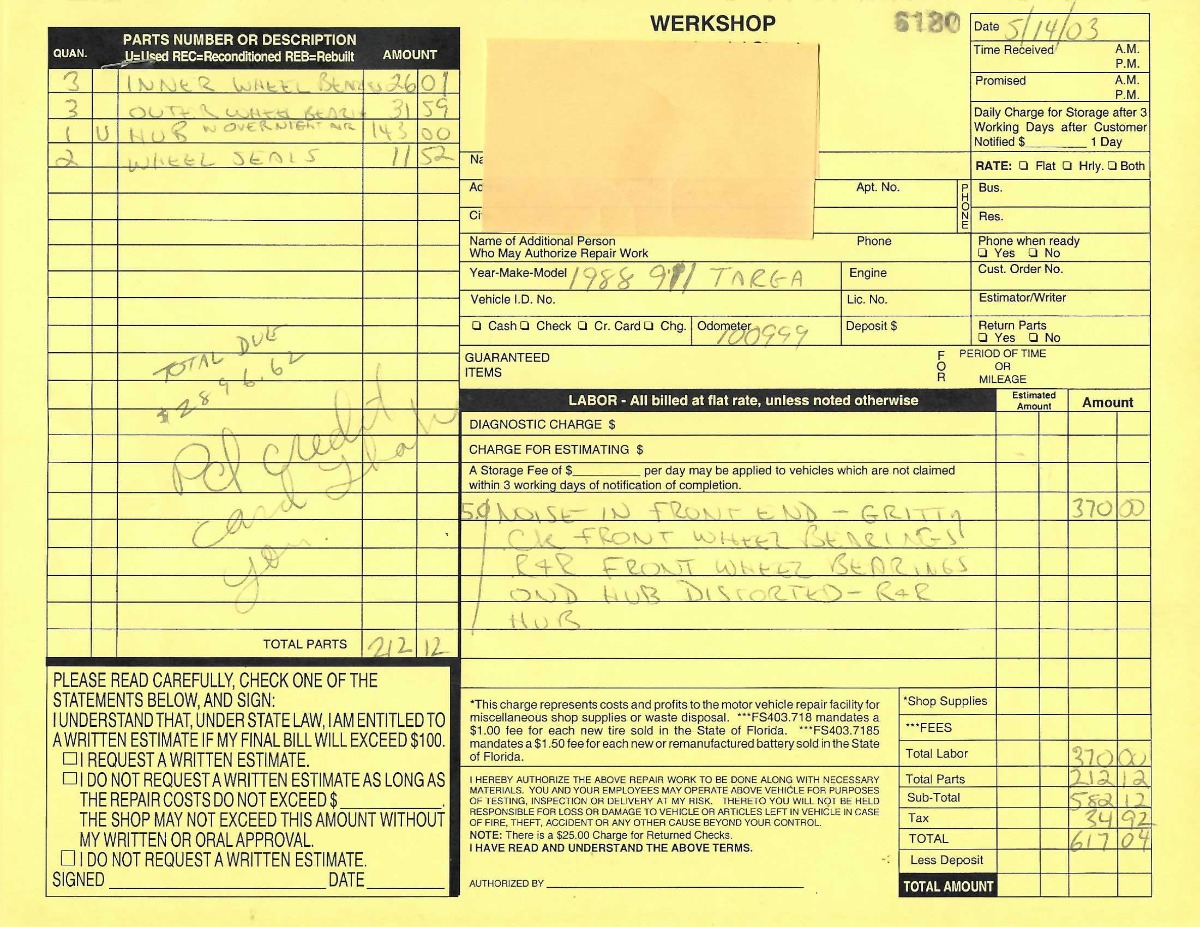 WERKSHOP
6180
Date 5/14/03
Time Received A.M.
P.M.
Promised A.M.
P.M.
Daily Charge for Storage after 3
Working Days after Customer
Notified $ 1 Day
RATE: ❏ Flat ❏ Hrly. ❏ Both
QUAN. PARTS NUMBER OR DESCRIPTION AMOUNT
U=Used REC=Reconditioned REB=Rebuilt
3 INNER WHEEL 26 01
3 OUTER WHEEL 31 59
1 U HUB W OVERNIGHT AIR 143 00
2 WHEEL SEALS 11 52
TOTAL DUE
$2896.62
Pd credit
card Thank
you.
TOTAL PARTS 212 12
Na
Ad
Apt. No.
Ci
PHONE
Bus.
Res.
Name of Additional Person Phone
Who May Authorize Repair Work
Phone when ready
❏ Yes ❏ No
Year-Make-Model 1988 911 TARGA Engine
Cust. Order No.
Vehicle I.D. No. Lic. No.
Estimator/Writer
❏ Cash ❏ Check ❏ Cr. Card ❏ Chg. Odometer 100999 Deposit $
Return Parts
❏ Yes ❏ No
GUARANTEED
ITEMS
FOR
PERIOD OF TIME
OR
MILEAGE
LABOR - All billed at flat rate, unless noted otherwise
Estimated
Amount
Amount
DIAGNOSTIC CHARGE $
CHARGE FOR ESTIMATING $
A Storage Fee of $ per day may be applied to vehicles which are not claimed
within 3 working days of notification of completion.
NOISE IN FRONT END - GRITTY 370 00
CK FRONT WHEEL BEARINGS
R+R FRONT WHEEL BEARINGS
HUB DISTORTED - R+R
HUB
PLEASE READ CAREFULLY, CHECK ONE OF THE
STATEMENTS BELOW, AND SIGN:
I UNDERSTAND THAT, UNDER STATE LAW, I AM ENTITLED TO
A WRITTEN ESTIMATE IF MY FINAL BILL WILL EXCEED $100.
☐ I REQUEST A WRITTEN ESTIMATE.
☐ I DO NOT REQUEST A WRITTEN ESTIMATE AS LONG AS
THE REPAIR COSTS DO NOT EXCEED $ .
THE SHOP MAY NOT EXCEED THIS AMOUNT WITHOUT
MY WRITTEN OR ORAL APPROVAL.
☐ I DO NOT REQUEST A WRITTEN ESTIMATE.
SIGNED DATE
*This charge represents costs and profits to the motor vehicle repair facility for
miscellaneous shop supplies or waste disposal. ***FS403.718 mandates a
$1.00 fee for each new tire sold in the State of Florida. ***FS403.7185
mandates a $1.50 fee for each new or remanufactured battery sold in the State
of Florida.
I HEREBY AUTHORIZE THE ABOVE REPAIR WORK TO BE DONE ALONG WITH NECESSARY
MATERIALS. YOU AND YOUR EMPLOYEES MAY OPERATE ABOVE VEHICLE FOR PURPOSES
OF TESTING, INSPECTION OR DELIVERY AT MY RISK. THERETO YOU WILL NOT BE HELD
RESPONSIBLE FOR LOSS OR DAMAGE TO VEHICLE OR ARTICLES LEFT IN VEHICLE IN CASE
OF FIRE, THEFT, ACCIDENT OR ANY OTHER CAUSE BEYOND YOUR CONTROL.
NOTE: There is a $25.00 Charge for Returned Checks.
I HAVE READ AND UNDERSTAND THE ABOVE TERMS.
AUTHORIZED BY
*Shop Supplies
***FEES
Total Labor 370 00
Total Parts 212 12
Sub-Total 582 12
Tax 34 92
TOTAL 617 04
Less Deposit
TOTAL AMOUNT